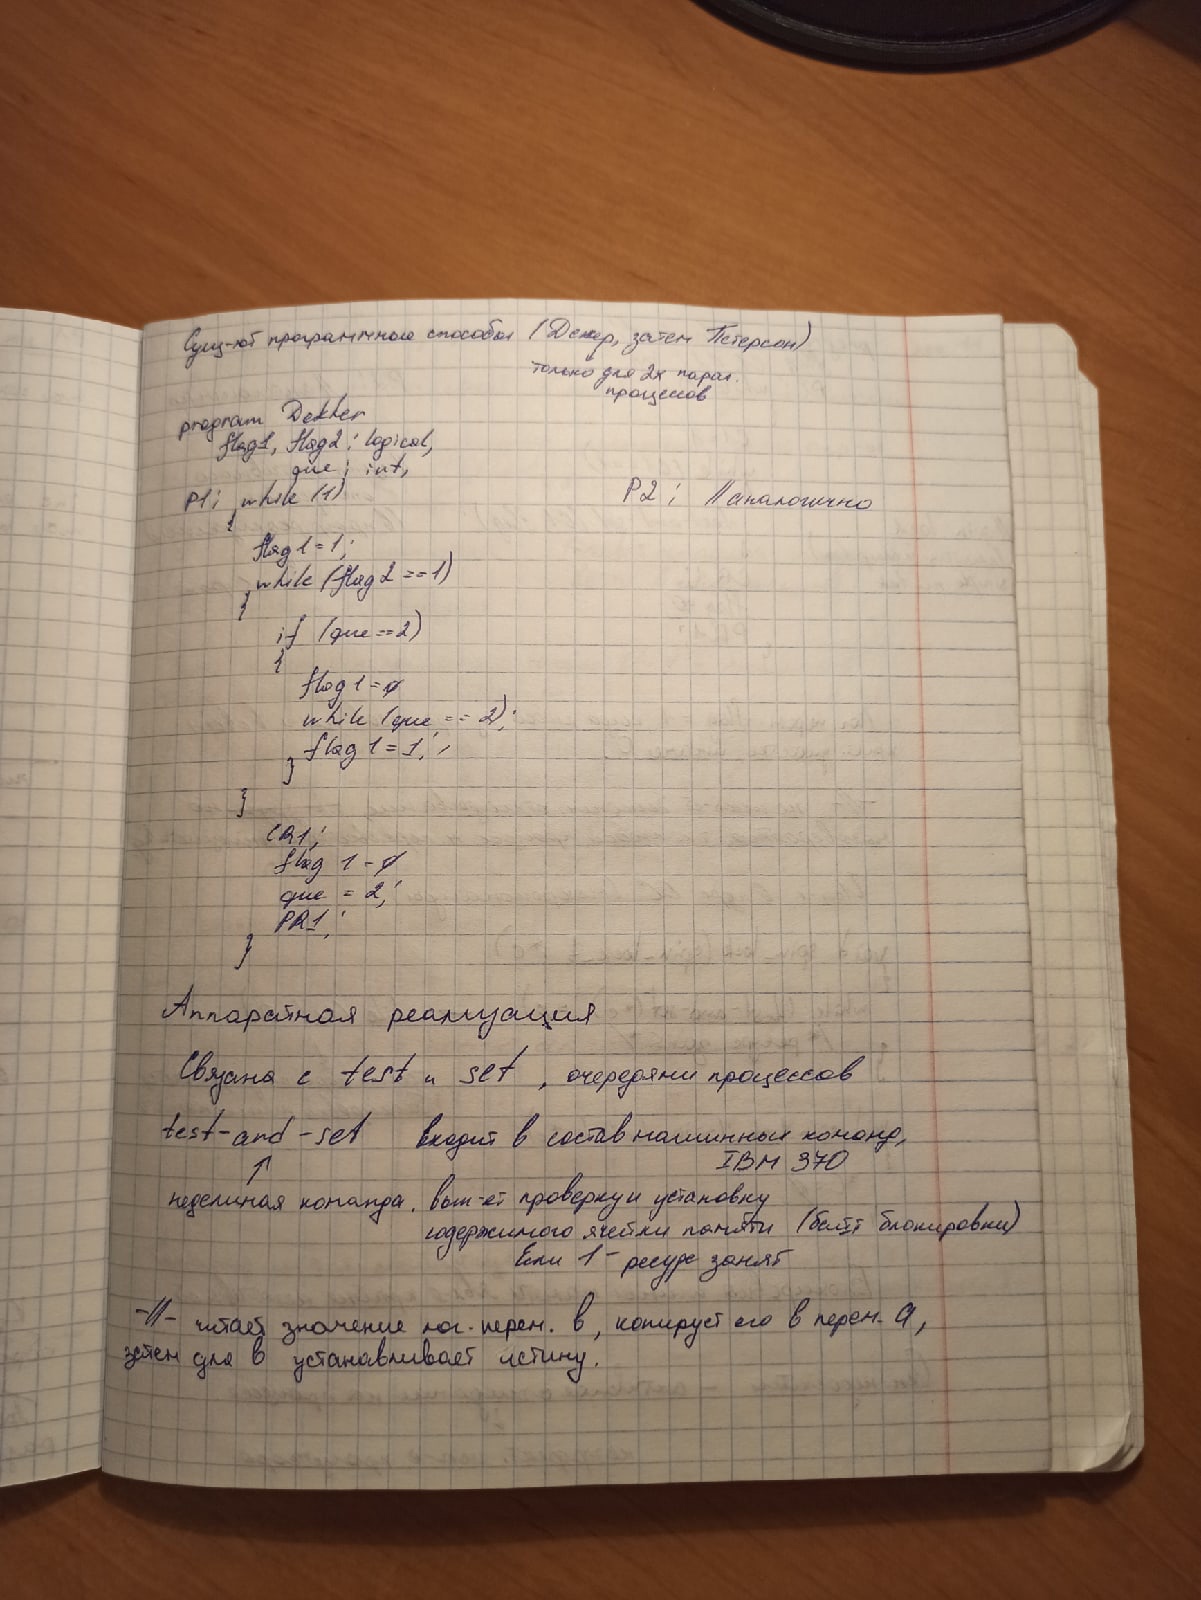 Сущ-ют программные способы (Декер, затем Петерсон)
только для 2х парал.
процессов
program Dekker
flag1, flag2 : logical;
que : int;
P1: while (1)
P2: // аналогично
{
flag1 = 1;
while (flag2 == 1)
{
if (que == 2)
{
flag1 = 0
while (que == 2);
flag1 = 1;
}
}
CR1;
flag 1 = 0
que = 2;
PR1;
}
Аппаратная реализация
Связана с test и set , очередями процессов
test-and-set входит в состав машинных команд,
IBM 370
↑
неделимая команда. вып-ет проверку и установку
содержимого ячейки памяти (байт блокировки)
Если 1 - ресурс занят
-//- читает значение лог. перем. в, копирует его в перем. а,
затем для в устанавливает истину.